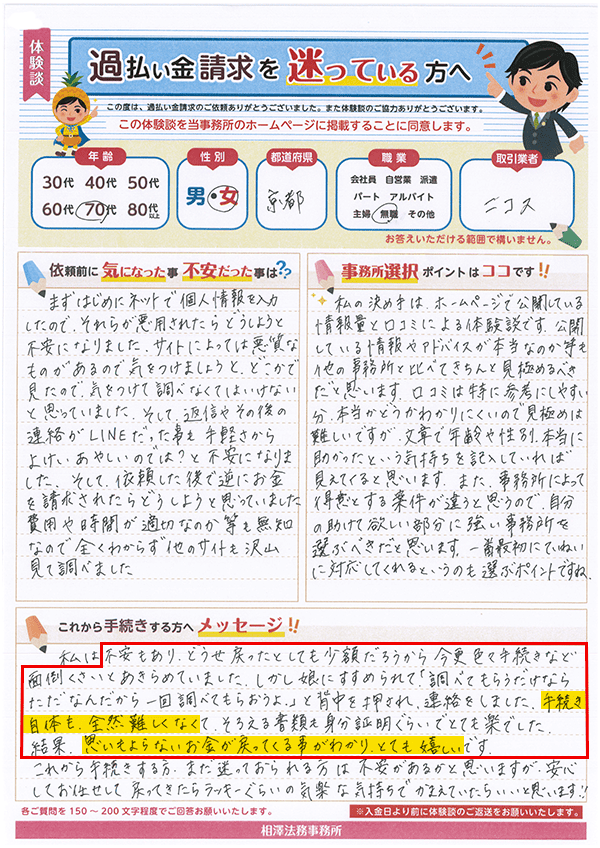 体験談
過払い金請求を迷っている方へ
この度は、過払い金請求のご依頼ありがとうございました。また体験談のご協力ありがとうございます。
この体験談を当事務所のホームページに掲載することに同意します。
年齢
30代 40代 50代
60代 70代 80代以上
性別
男・女
都道府県
京都
職業
会社員 自営業 派遣
パート アルバイト
主婦 無職 その他
取引業者
ニコス
お答えいただける範囲で構いません。
依頼前に気になった事 不安だった事は??
まずはじめにネットで個人情報を入力
したので、それらが悪用されたらどうしようと
不安になりました。サイトによっては悪質な
ものがあるので気をつけましょうと、どこかで
見たので、気をつけて調べなくてはいけない
と思っていました。そして、返信やその後の
連絡がLINEだった事も手軽さから
よけい、あやしいのでは?と不安になりま
した。そして、依頼した後で逆にお金
を請求されたらどうしようと思っていました
費用や時間が適切なのか等も無知
なので全くわからず他のサイトも沢山
見て調べました
事務所選択ポイントはココです!!
私の決め手は、ホームページで公開している
情報量と口コミによる体験談です。公開
している情報やアドバイスが本当なのか等も
他の事務所と比べてきちんと見極めるべき
だと思います。口コミは特に参考にしやすい
分、本当かどうかわかりにくいので見極めは
難しいですが、文章で年齢や性別、本当に
助かったという気持ちを記入していれば
見えてくると思います。また、事務所によって
得意とする案件が違うと思うので、自分
の助けて欲しい部分に強い事務所を
選ぶべきだと思います。一番最初にていねい
に対応してくれるというのも選ぶポイントですね
これから手続きする方へメッセージ!!
私は不安もあり、どうせ戻ったとしても少額だろうから今更色々手続きなど
面倒くさいとあきらめていました。しかし娘にすすめられて「調べてもらうだけなら
ただなんだから一回調べてもらおうよ。」と背中を押され、連絡をしました。手続き
自体も、全然難しくなくて、そろえる書類も身分証明ぐらいでとても楽でした。
結果、思いもよらないお金が戻ってくる事がわかり、とても嬉しいです。
これから手続きする方、まだ迷っておられる方は不安があるかと思いますが、安心
してお任せして戻ってきたらラッキーぐらいの気楽な気持ちでかまえていたらいいと思います!!
各ご質問を150～200文字程度でご回答お願いいたします。
※入金日より前に体験談のご返送をお願いいたします。
相澤法務事務所